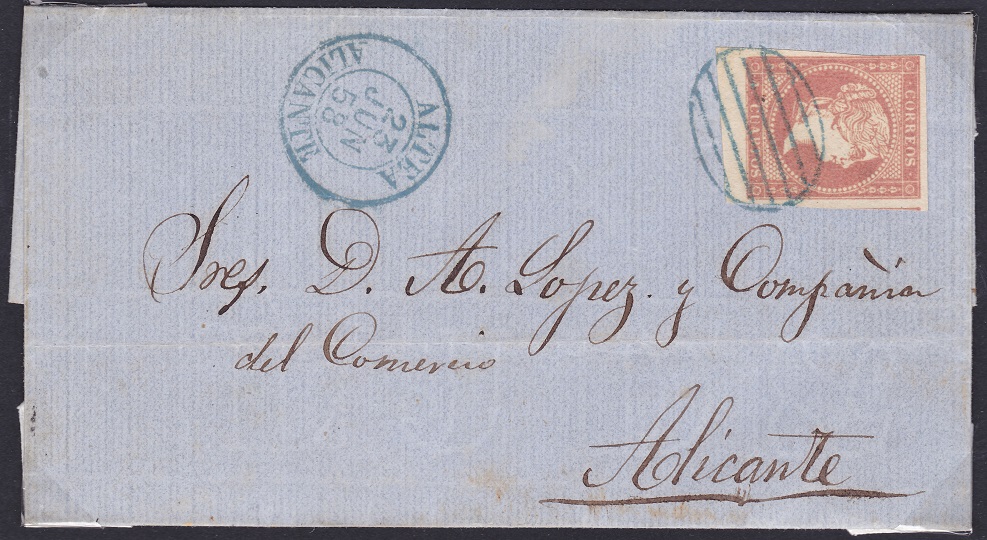 ALTEA
23
JUN
58
ALICANTE
CORREOS
Sres. D. A. Lopez. y Compañia
del Comercio
Alicante